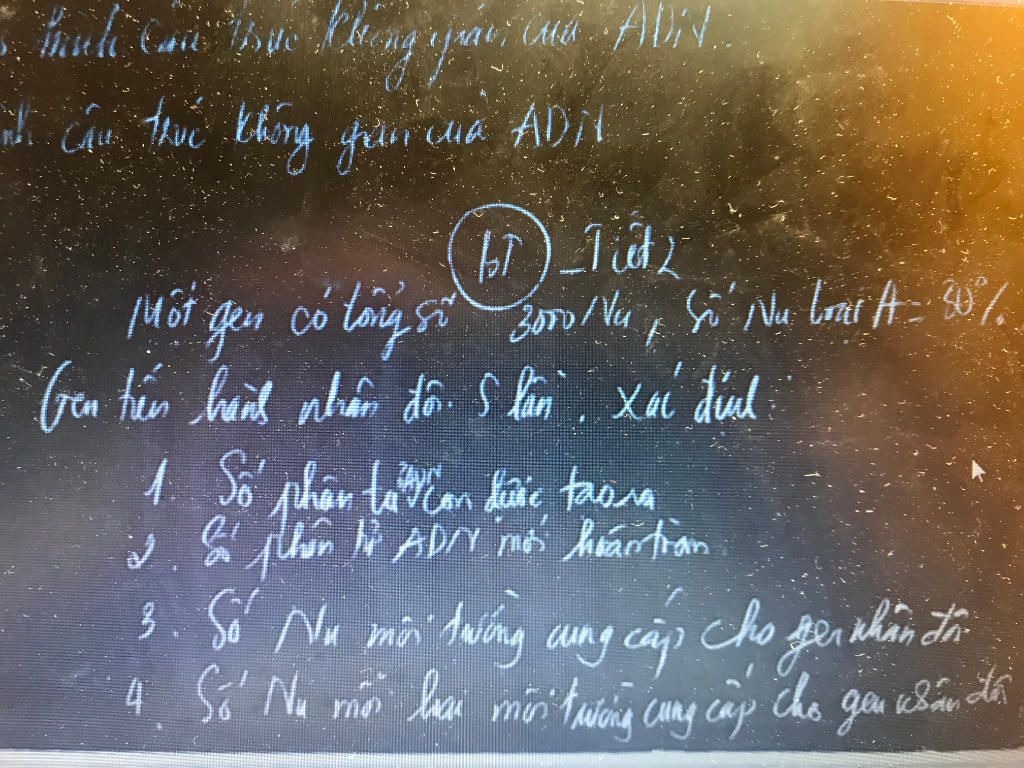 hình cấu trúc không gian của ADN.
cấu trúc không gian của ADN
BT - Tiết 2
Một gen có tổng số 3000 Nu, Số Nu loại A = 30%
Gen tiến hành nhân đôi 5 lần. Xác định:
1. Số phân tử ADN con được tạo ra
2. Số phân tử ADN mới hoàn toàn
3. Số Nu môi trường cung cấp cho gen nhân đôi
4. Số Nu mỗi loại môi trường cung cấp cho gen nhân đôi